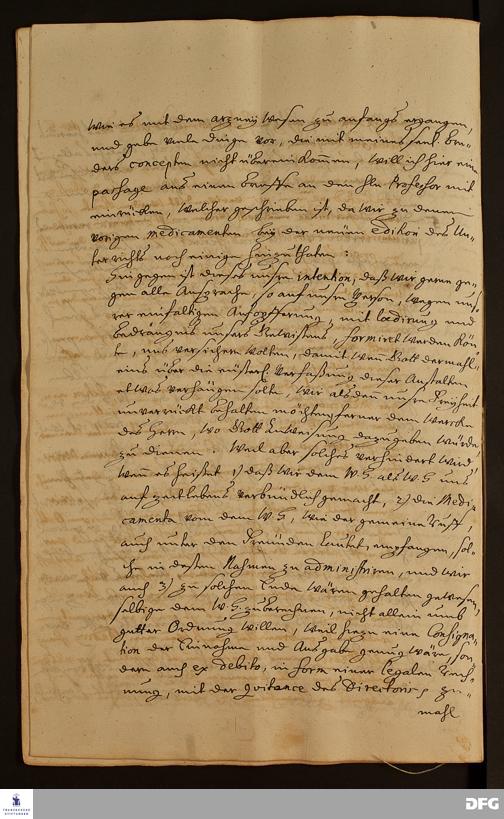 wie es mit dem arzney wesen zu anfangs ergangen,
und gebe viele dinge vor, die mit meines seel. Bru-
ders concepten nicht überein kommen, will ich hier eine
passage aus einem brieffe an den Hln Professor mit
einrücken, welcher geschrieben ist, da wir zu denen
vorigen medicamenten bey der neuen edition des Un-
terrichts noch einige hinzuthaten:
Hingegen ist dieses unsre intention, daß wir gerne ge-
gen alle Ansprache, so auf unsre Person, wegen uns-
rer einfältigen Aufopfferung, mit lædirung und
Bedrängnis unsers Gewissens, formiret werden kön-
te, uns versichern wolten, damit wenn Gott dermahl-
eins über die äuserl. Verfaßung dieser Anstalten
etwas verhängen solte, wir alsdenn unsre Freyheit
unverrückt behalten möchten, ferner dem Wercke
des Herrn, wo Gott Anweisung dazu geben würde,
zu dienen. Weil aber solches verhindert wird,
wenn es heisset 1) daß wir dem W.H. als W.H. uns
auf zeitlebens verbindlich gemacht, 2) die Medi-
camenta von dem W.H., wie der gemeine Ruff,
auch unter den Freunden lautet, empfangen, sol-
che in deßen Nahmen zu administriren, und wir
auch 3) zu solchem Ende wären gehalten gewesen,
selbige dem W.H. zu berechnen, nicht allein umb
guter Ordnung willen, weil hiezu eine Consigna-
tion der Einnahme und Ausgabe genug wäre, son-
dern auch ex debito, in form einer legalen Rech-
nung, mit der Quitance des Directoris, zu-
mahl
FRANCKESCHE
STIFTUNGEN
DFG